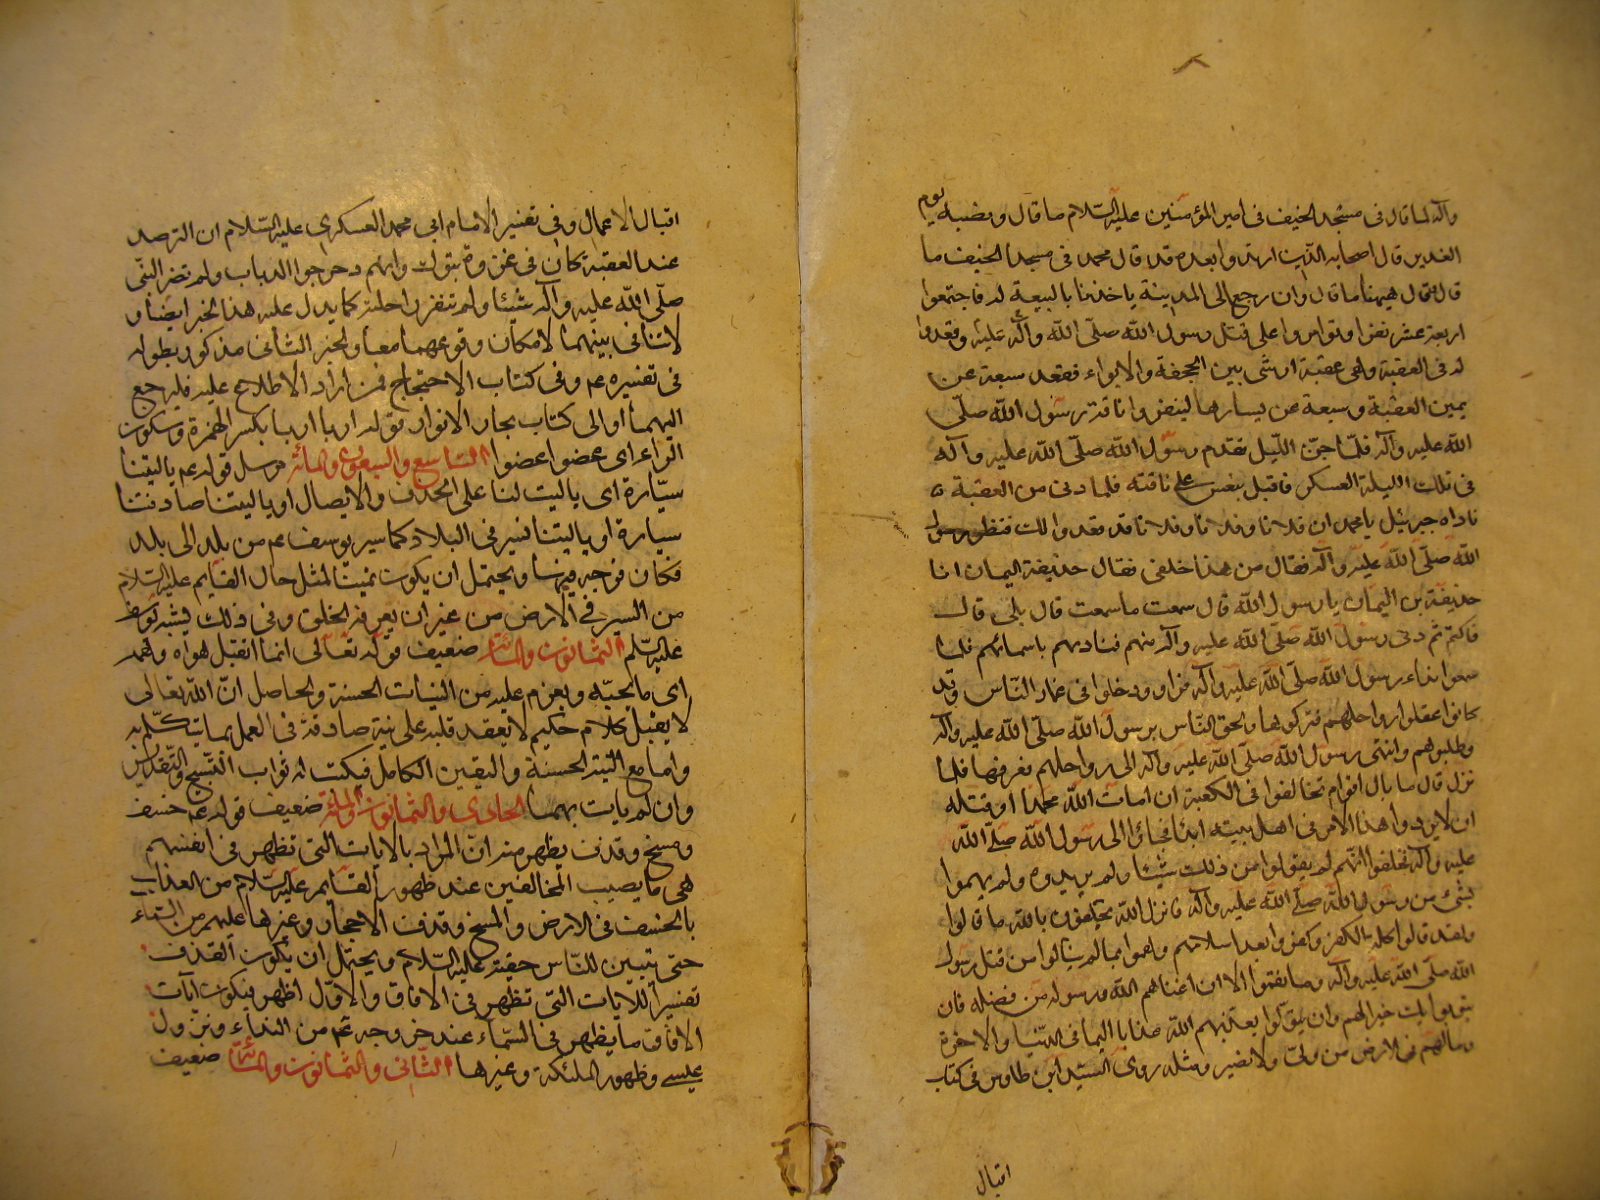 وآله لما قال في مسجد الخيف في امير المؤمنين عليه السلام ما قال ونصبه يوم
الغدير قال اصحابه الذين ارتدوا بعده قد قال محمد في مسجد الخيف ما
قال وقال هيهنا ما قال وان رجع الى المدينة ياخذنا بالبيعة له فاجتمعوا
اربعة عشر نفرا وتوامروا على قتل رسول الله صلى الله وآله عليه وقعدوا
له في العقبة وهى عقبة ارشى بين الجحفة والابواء فقعد سبعة عن
يمين العقبة وسبعة عن يسارها لينفروا ناقة رسول الله صلى
الله عليه وآله فلما جن الليل تقدم رسول الله صلى الله عليه وآله
في تلك الليلة العسكر فاقبل ينعس على ناقته فلما دنى من العقبة
ناداه جبرئيل يا محمد ان فلانا وفلانا وفلانا قد قعدوا لك فنظر رسول
الله صلى الله عليه وآله فقال من هذا خلفي فقال حذيفة اليمان انا
حذيفة بن اليمان يا رسول الله قال سمعت ما سمعت قال بلى قال
فاكتم ثم دنى رسول الله صلى الله عليه وآله منهم فناداهم باسمائهم فلما
سمعوا نداء رسول الله صلى الله عليه وآله فروا ودخلوا في غمار الناس وقد
كانوا عقلوا رواحلهم فتركوها ولحق الناس برسول الله صلى الله عليه وآله
وطلبوهم وانتهى رسول الله صلى الله عليه وآله الى رواحلهم فعرفها فلما
نزل قال ما بال اقوام تحالفوا في الكعبة ان امات الله محمدا او قتله
ان لا يردوا هذا الامر في اهل بيته ابدا فجاؤا الى رسول الله صلى الله
عليه وآله فحلفوا انهم لم يقولوا من ذلك شيئا ولم يريدوه ولم يهموا
بشئ من رسول الله صلى الله عليه وآله فانزل الله يحلفون بالله ما قالوا
ولقد قالوا كلمة الكفر وكفروا بعد اسلامهم وهموا بما لم ينالوا من قتل رسول
الله صلى الله عليه وآله وما نقموا الا ان اغناهم الله ورسوله من فضله فان
يتوبوا يك خيرا لهم وان يتولوا يعذبهم الله عذابا اليما في الدنيا والاخرة
وما لهم في الارض من ولي ولا نصير ومثله روى السيد ابن طاوس في كتاب
اقبال
اقبال الاعمال وفي تفسير الامام ابي محمد العسكري عليه السلام ان الترصد
عند العقبة كان في غزوة تبوك وانهم دحرجوا الدباب ولم تضر النبي
صلى الله عليه وآله شيئا ولم تنفر راحلته كما يدل عليه هذا الخبر ايضا و
لا تنافى بينهما لامكان وقوعهما معا والخبر الثاني مذكور بطوله
في تفسيره عم وفي كتاب الاحتجاج فمن اراد الاطلاع عليه فليرجع
اليهما او الى كتاب بحار الانوار قوله اربا اربا بكسر الهمزة وسكون
الراء اى عضوا عضوا التاسع والسبعون والمائة مرسل قوله عم يا ليتنا
سيارة اى يا ليت لنا على الحذف والايصال او يا ليتنا صادفتنا
سيارة او يا ليتنا نسير في البلاد كما سير يوسف عم من بلد الى بلد
فكان فرجه فيها ويحتمل ان يكون تمنيا لمثل حال القايم عليه السلام
من السير في الارض من غير ان يعرفه الخلق وفي ذلك يشبه يوسف
عليه السلم الثمانون والمائة ضعيف قوله تعالى انما اتقبل هواه وهمه
اى ما يحبه ويعزم عليه من النيات الحسنة والحاصل ان الله تعالى
لا يقبل كلام حكيم لا يعقد قلبه على نية صادقة في العمل بما يتكلم به
واما مع النية الحسنة واليقين الكامل فيكتب له ثواب التسبيح والتقديس
وان لم يات بهما الحادى والثمانون والمائة ضعيف قوله عم خسف
ومسخ وقذف يظهر منه ان المراد بالايات التي تظهر في انفسهم
هي ما يصيب المخالفين عند ظهور القايم عليه السلام من العذاب
بالخسف في الارض والمسخ وقذف الاحجار وغيرها عليهم من السماء
حتى يتبين للناس حقيته عليه السلام ويحتمل ان يكون القذف
تفسيرا للايات التي تظهر في الافاق والاول اظهر فيكون آيات
الافاق ما يظهر في السماء عند خروجه عم من النداء ونزول
عيسى وظهور الملئكة وغيرها الثاني والثمانون والمائة ضعيف